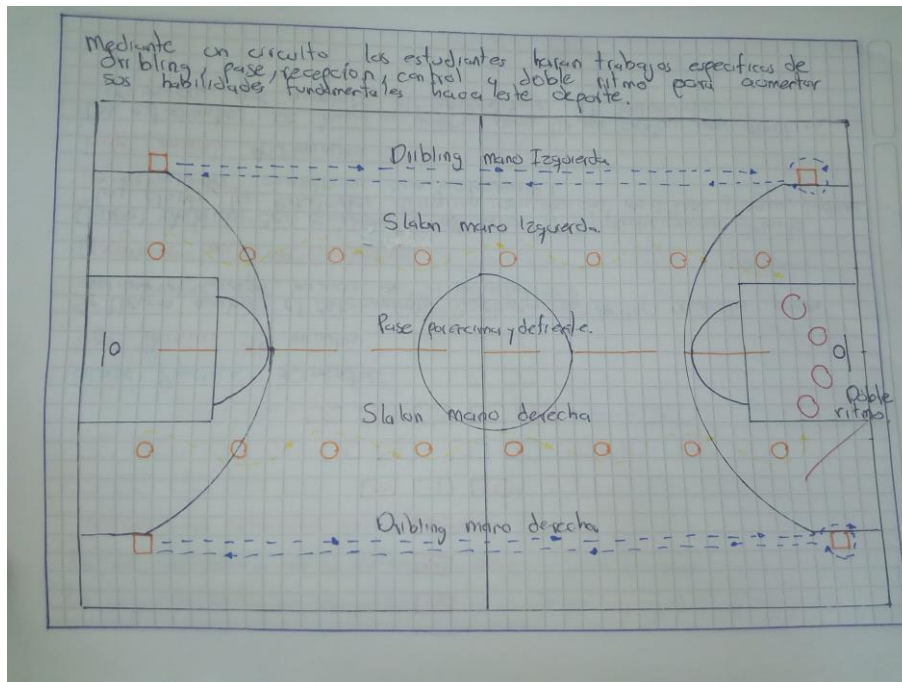 Mediante un circuito los estudiantes haran trabajos especificos de
dribling, pase, recepcion, control y doble ritmo para aumentar
sus habilidades fundamentales hacia este deporte.
Dribling mano Izquierda
Slalon mano Izquierda
Pase por encima y de frente.
Slalon mano derecha
Doble
ritmo
Dribling mano derecha